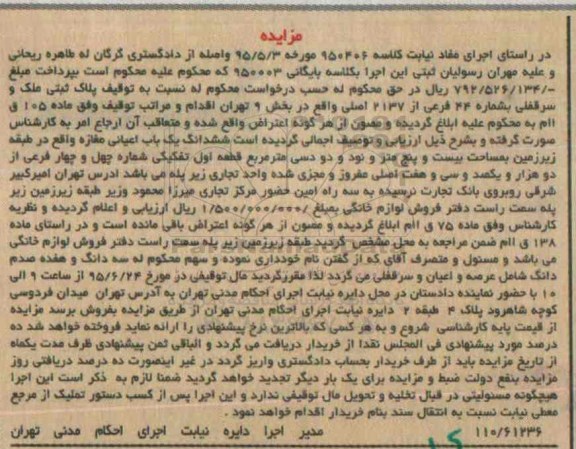 مزایده
در راستای اجرای مفاد نیابت کلاسه ۹۵۰۴۰۶ مورخه ۹۵/۵/۳ واصله از دادگستری گرگان له طاهره ریحانی
و علیه مهران رسولیان ثبتی این اجرا بکلاسه بایگانی ۹۵۰۰۰۳ که محکوم علیه محکوم است بپرداخت مبلغ
۷۹۲/۵۲۶/۱۳۴/- ریال در حق محکوم له حسب درخواست محکوم له نسبت به توقیف پلاک ثبتی ملک و
سرقفلی بشماره ۴۴ فرعی از ۲۱۳۷ اصلی واقع در بخش ۹ تهران اقدام و مراتب توقیف وفق ماده ۱۰۵ ق
اام به محکوم علیه ابلاغ گردیده و مصون از هر گونه اعتراض واقع شده و متعاقب آن ارجاع امر به کارشناس
صورت گرفته و بشرح ذیل ارزیابی و توصیف اجمالی گردیده است ششدانگ یک باب اعیانی مغازه واقع در طبقه
زیرزمین بمساحت بیست و پنج متر و نود و دو دسی مترمربع قطعه اول تفکیکی شماره چهل و چهار فرعی از
دو هزار و یکصد و سی و هفت اصلی مفروز و مجزی شده واحد تجاری زیر پله می باشد ادرس تهران امیرکبیر
شرقی روبروی بانک تجارت نرسیده به سه راه امین حضور مرکز تجاری میرزا محمود وزیر طبقه زیرزمین زیر
پله سمت راست دفتر فروش لوازم خانگی بمبلغ ۱/۵۰۰/۰۰۰/۰۰۰ ریال ارزیابی و اعلام گردیده و نظریه
کارشناس وفق ماده ۷۵ ق اام ابلاغ گردیده و مصون از هر گونه اعتراض باقی مانده است و در راستای ماده
۱۳۸ ق اام ضمن مراجعه به محل مشخص گردید طبقه زیرزمین زیر پله سمت راست دفتر فروش لوازم خانگی
می باشد و مسئول و متصرف آقای که از گفتن نام خودداری نموده و سهم محکوم له سه دانگ و هفده صدم
دانگ شامل عرصه و اعیان و سرقفلی می گردد لذا مقررگردید مال توقیفی در مورخ ۹۵/۶/۲۴ از ساعت ۹ الی
۱۰ با حضور نماینده دادستان در محل دایره نیابت اجرای احکام مدنی تهران به آدرس تهران میدان فردوسی
کوچه شاهرود پلاک ۴ طبقه ۲ دایره نیابت اجرای احکام مدنی تهران از طریق مزایده بفروش برسد مزایده
از قیمت پایه کارشناسی شروع و به هر کسی که بالاترین نرخ پیشنهادی را ارائه نماید فروخته خواهد شد ده
درصد مورد پیشنهادی فی المجلس نقدا از خریدار دریافت می گردد و الباقی ثمن پیشنهادی ظرف مدت یکماه
از تاریخ مزایده باید از طرف خریدار بحساب دادگستری واریز گردد در غیر اینصورت ده درصد دریافتی روز
مزایده بنفع دولت ضبط و مزایده برای یک بار دیگر تجدید خواهد گردید ضمنا لازم به ذکر است این اجرا
هیچگونه مسئولیتی در قبال تخلیه و تحویل مال توقیفی ندارد و این اجرا پس از کسب دستور تملیک از مرجع
معطی نیابت نسبت به انتقال سند بنام خریدار اقدام خواهد نمود .
۱۱۰/۶۱۲۳۶ مدیر اجرا دایره نیابت اجرای احکام مدنی تهران